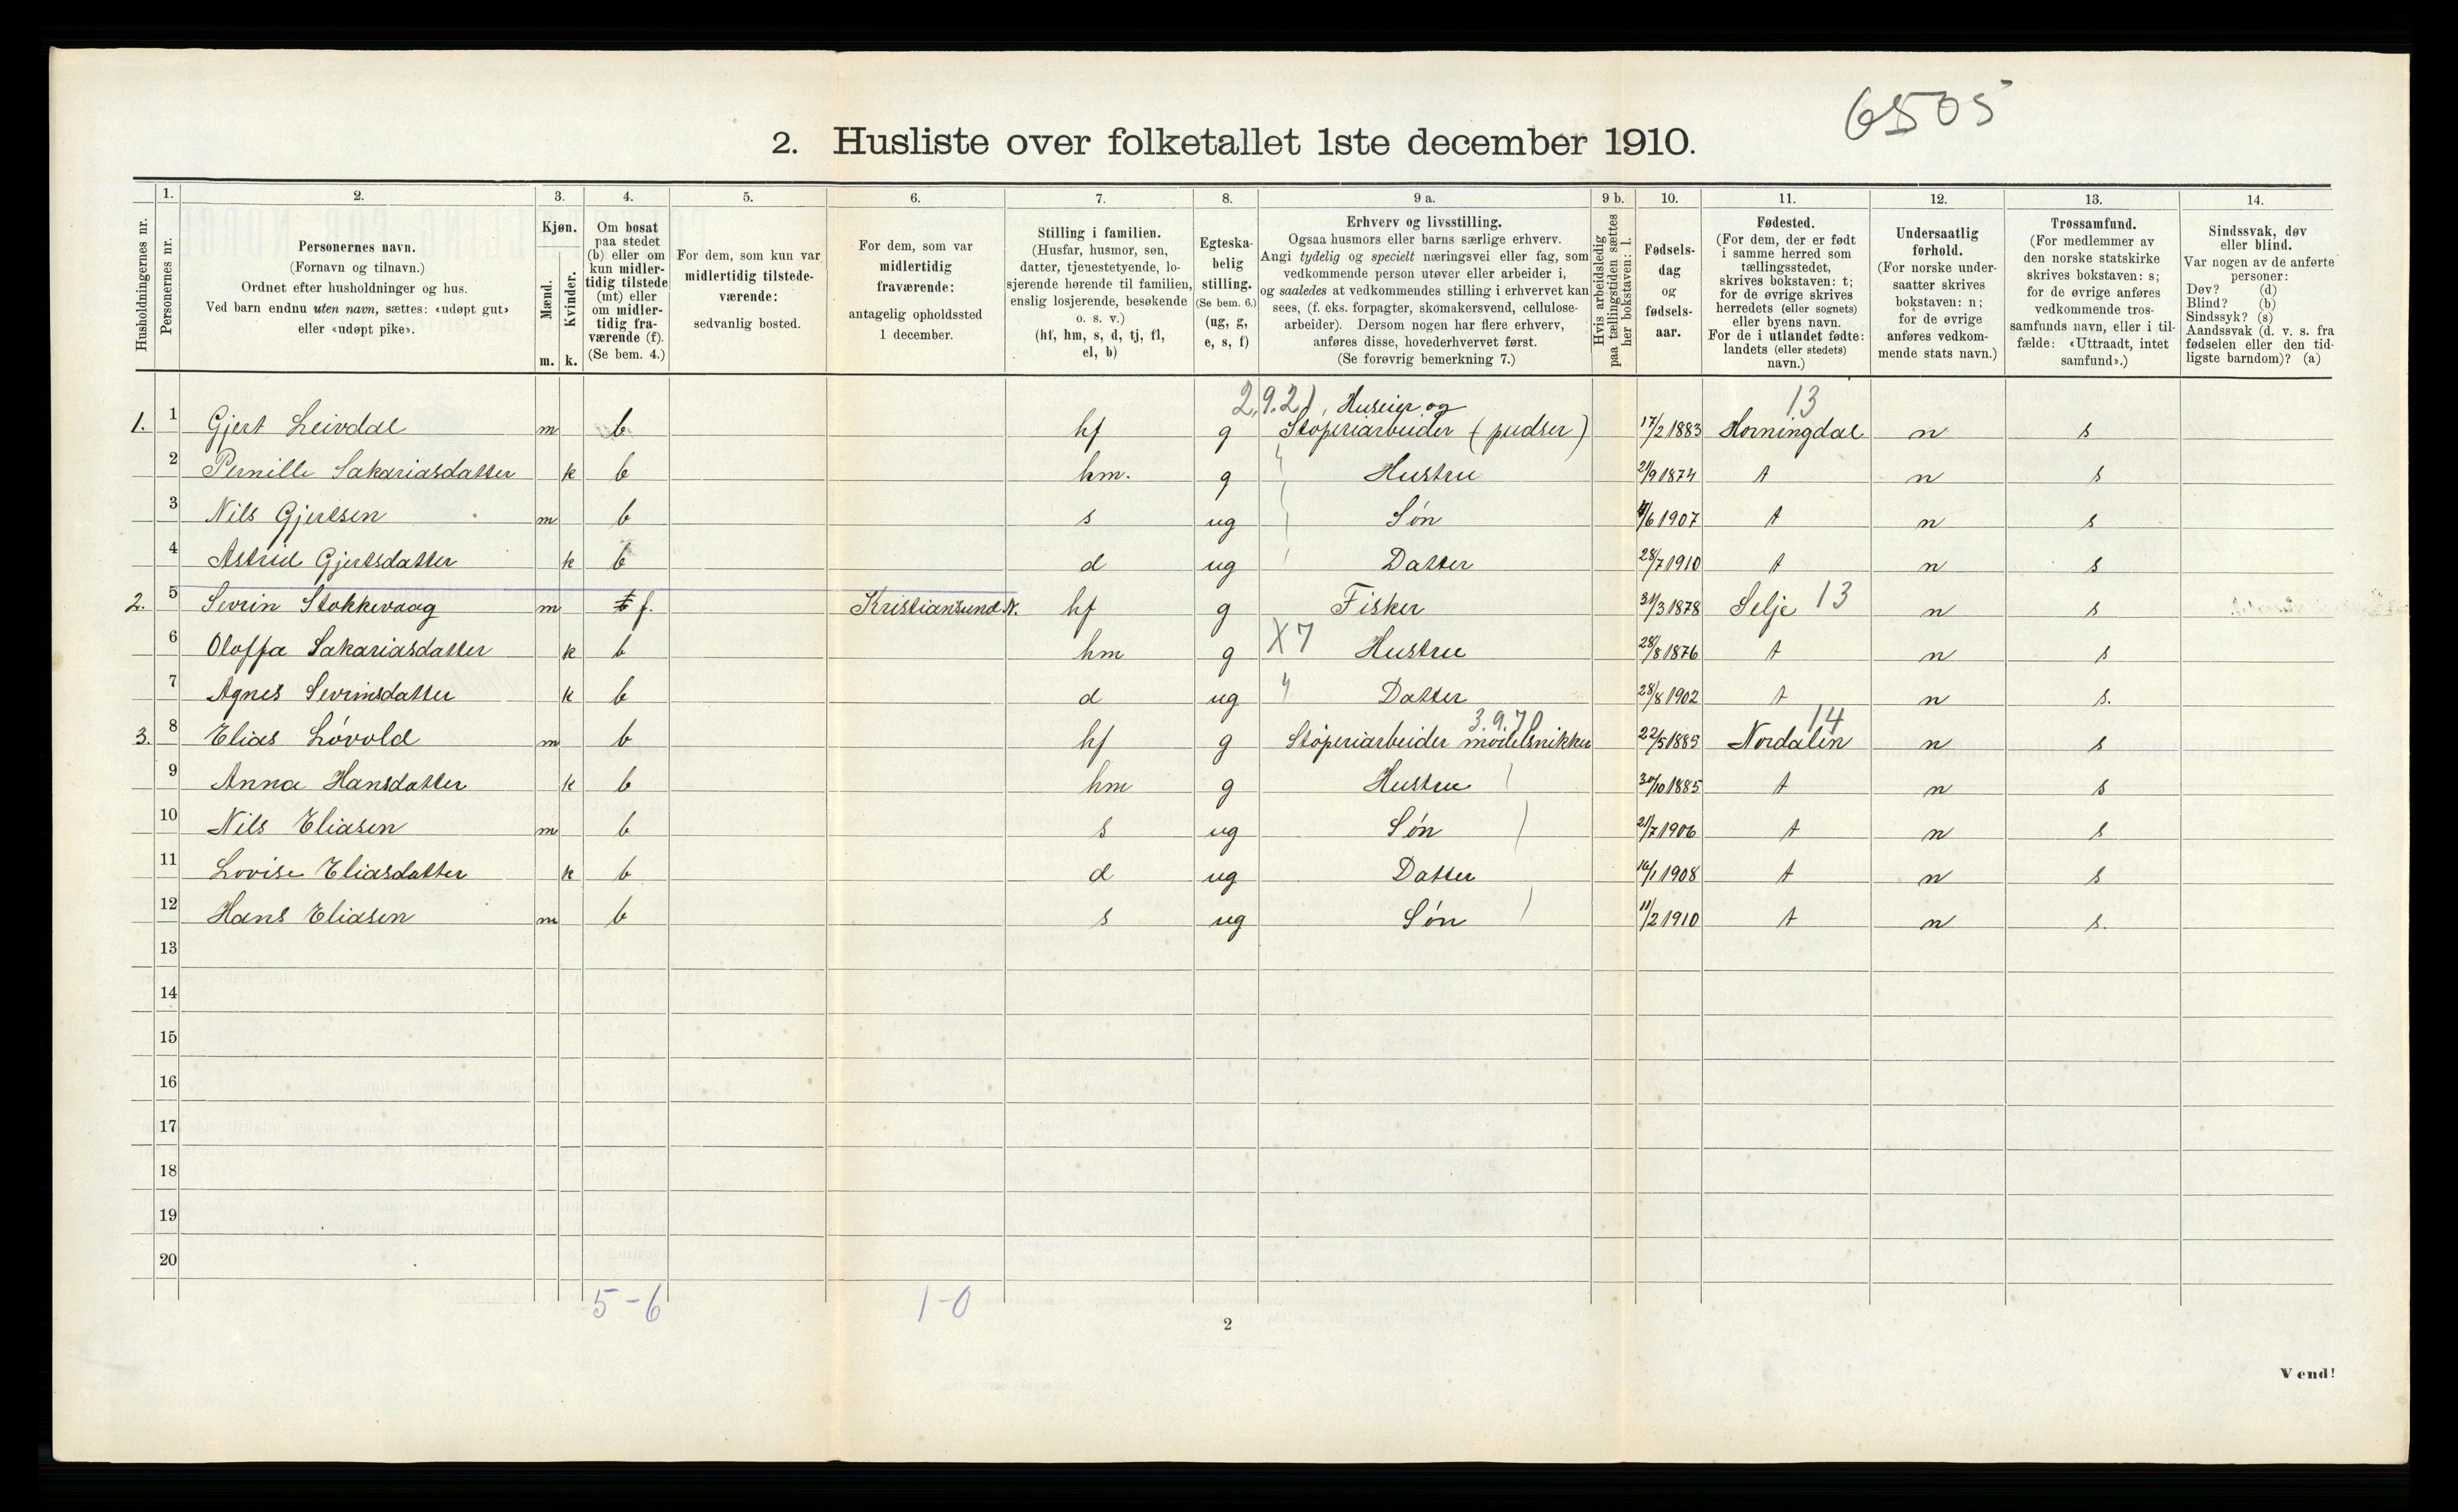 6505
2. Husliste over folketallet 1ste december 1910.
Husholdningernes nr.
1. Personernes nr.
2. Personernes navn. (Fornavn og tilnavn.) Ordnet efter husholdninger og hus. Ved barn endnu uten navn, sættes: «udøpt gut» eller «udøpt pike».
3. Kjøn. Mænd. m. Kvinder. k.
4. Om bosat paa stedet (b) eller om kun midler-tidig tilstede (mt) eller om midler-tidig fra-værende (f). (Se bem. 4.)
5. For dem, som kun var midlertidig tilstede-værende: sedvanlig bosted.
6. For dem, som var midlertidig fraværende: antagelig opholdssted 1 december.
7. Stilling i familien. (Husfar, husmor, søn, datter, tjenestetyende, lo-sjerende hørende til familien, enslig losjerende, besøkende o. s. v.) (hf, hm, s, d, tj, fl, el, b)
8. Egteska-belig stilling. (Se bem. 6.) (ug, g, e, s, f)
9 a. Erhverv og livsstilling. Ogsaa husmors eller barns særlige erhverv. Angi tydelig og specielt næringsvei eller fag, som vedkommende person utøver eller arbeider i, og saaledes at vedkommendes stilling i erhvervet kan sees, (f. eks. forpagter, skomakersvend, cellulose-arbeider). Dersom nogen har flere erhverv, anføres disse, hovederhvervet først. (Se forøvrig bemerkning 7.)
9 b. Hvis arbeidsledig paa tællingstiden sættes her bokstaven: l.
10. Fødsels-dag og fødsels-aar.
11. Fødested. (For dem, der er født i samme herred som tællingsstedet, skrives bokstaven: t; for de øvrige skrives herredets (eller sognets) eller byens navn. For de i utlandet fødte: landets (eller stedets) navn.)
12. Undersaatlig forhold. (For norske under-saatter skrives bokstaven: n; for de øvrige anføres vedkom-mende stats navn.)
13. Trossamfund. (For medlemmer av den norske statskirke skrives bokstaven: s; for de øvrige anføres vedkommende tros-samfunds navn, eller i til-fælde: «Uttraadt, intet samfund».)
14. Sindssvak, døv eller blind. Var nogen av de anførte personer: Døv? (d) Blind? (b) Sindssyk? (s) Aandssvak (d. v. s. fra fødselen eller den tid-ligste barndom)? (a)
2.9.21, Huseier og 13
1. 1 Gjert Leivdal m b hf g Støperiarbeider (pudser) 17/2 1883 Horningdal n s
2 Pernille Sakariasdatter k b hm. g Hustru 21/9 1874 t n s
3 Nils Gjertsen m b s ug Søn /6 1907 t n s
4 Astrid Gjertsdatter k b d ug Datter 28/7 1910 t n s
2. 5 Sevrin Stokkevaag m f. Kristiansund N. hf g Fisker 31/3 1878 Selje 13 n s
6 Oloffa Sakariasdatter k b hm g X7 Hustru 28/8 1876 t n s
7 Agnes Sevrinsdatter k b d ug " Datter 28/8 1902 t n s.
3.9.70 14
3. 8 Elias Løvold m b hf g Støperiarbeider modelsnikker 22/5 1885 Nordalen n s
9 Anna Hansdatter k b hm g Hustru 30/10 1885 t n s
10 Nils Eliasen m b s ug Søn 21/7 1906 t n s
11 Lovise Eliasdatter k b d ug Datter 16/1 1908 t n s
12 Hans Eliasen m b s ug Søn 11/2 1910 t n s.
13
14
15
16
17
18
19
20
5-6 1-0
2
Vend!